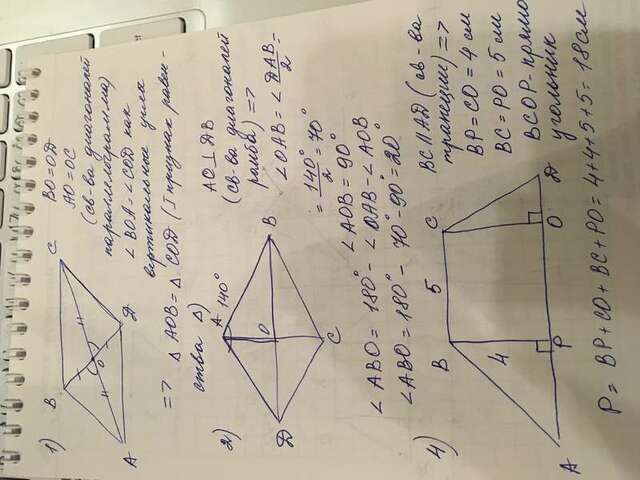 1)
B
C
A
D
O
BO=OD
AO=OC
(св-ва диагоналей
параллелограмма)
∠BOA=∠COD как
вертикальные углы
=> △AOB=△COD (I признак равен-
ства △)
2)
A 140°
B
O
D
C
AO⊥DB
(св-ва диагоналей
ромба) =>
∠OAB=∠DAB/2=
=140°/2=70°
∠AOB=90°
∠ABO=180°-∠OAB-∠AOB
∠ABO=180°-70°-90°=20°
4)
B 5 C
4
A P O D
BC||AD (св-ва
трапеции) =>
BP=CO=4 см
BC=PO=5 см
BCOP-прямо
угольник
P=BP+CO+BC+PO=4+4+5+5=18см